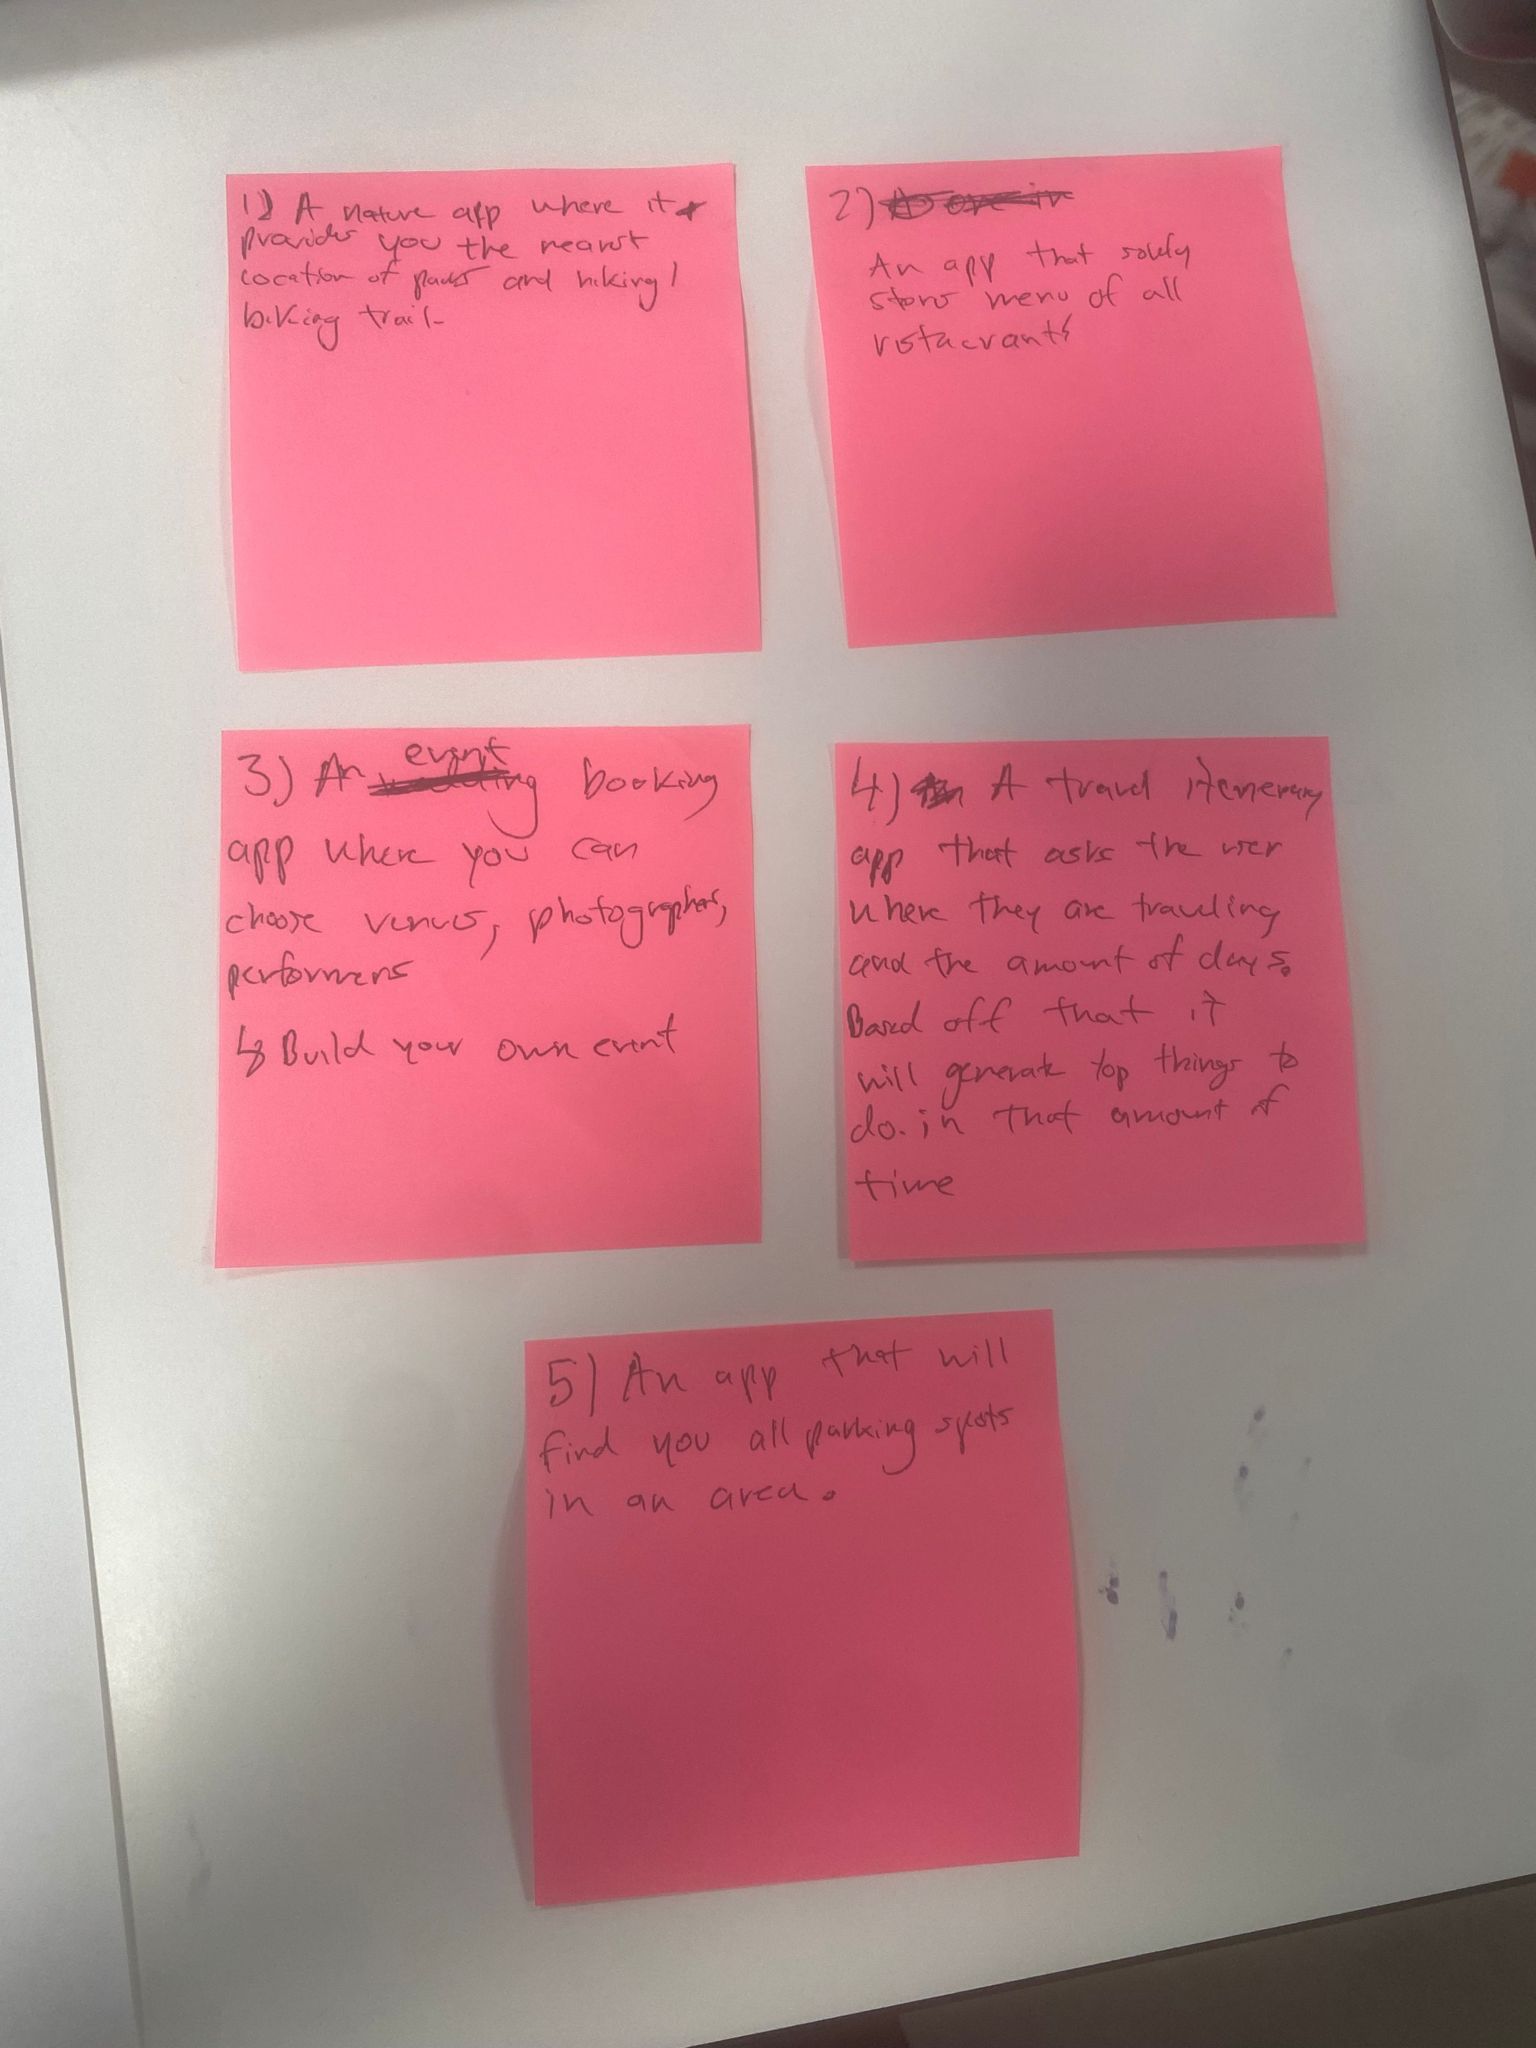 1) A nature app where it
provides you the nearest
location of parks and hiking /
biking trail.
2)
An app that solely
stores menu of all
restaurants
3) An event booking
app where you can
choose venues, photographers,
performers
↳ Build your own event
4) A travel itenerary
app that asks the user
where they are traveling
and the amount of days.
Based off that it
will generate top things to
do in that amount of
time
5) An app that will
find you all parking spots
in an area.